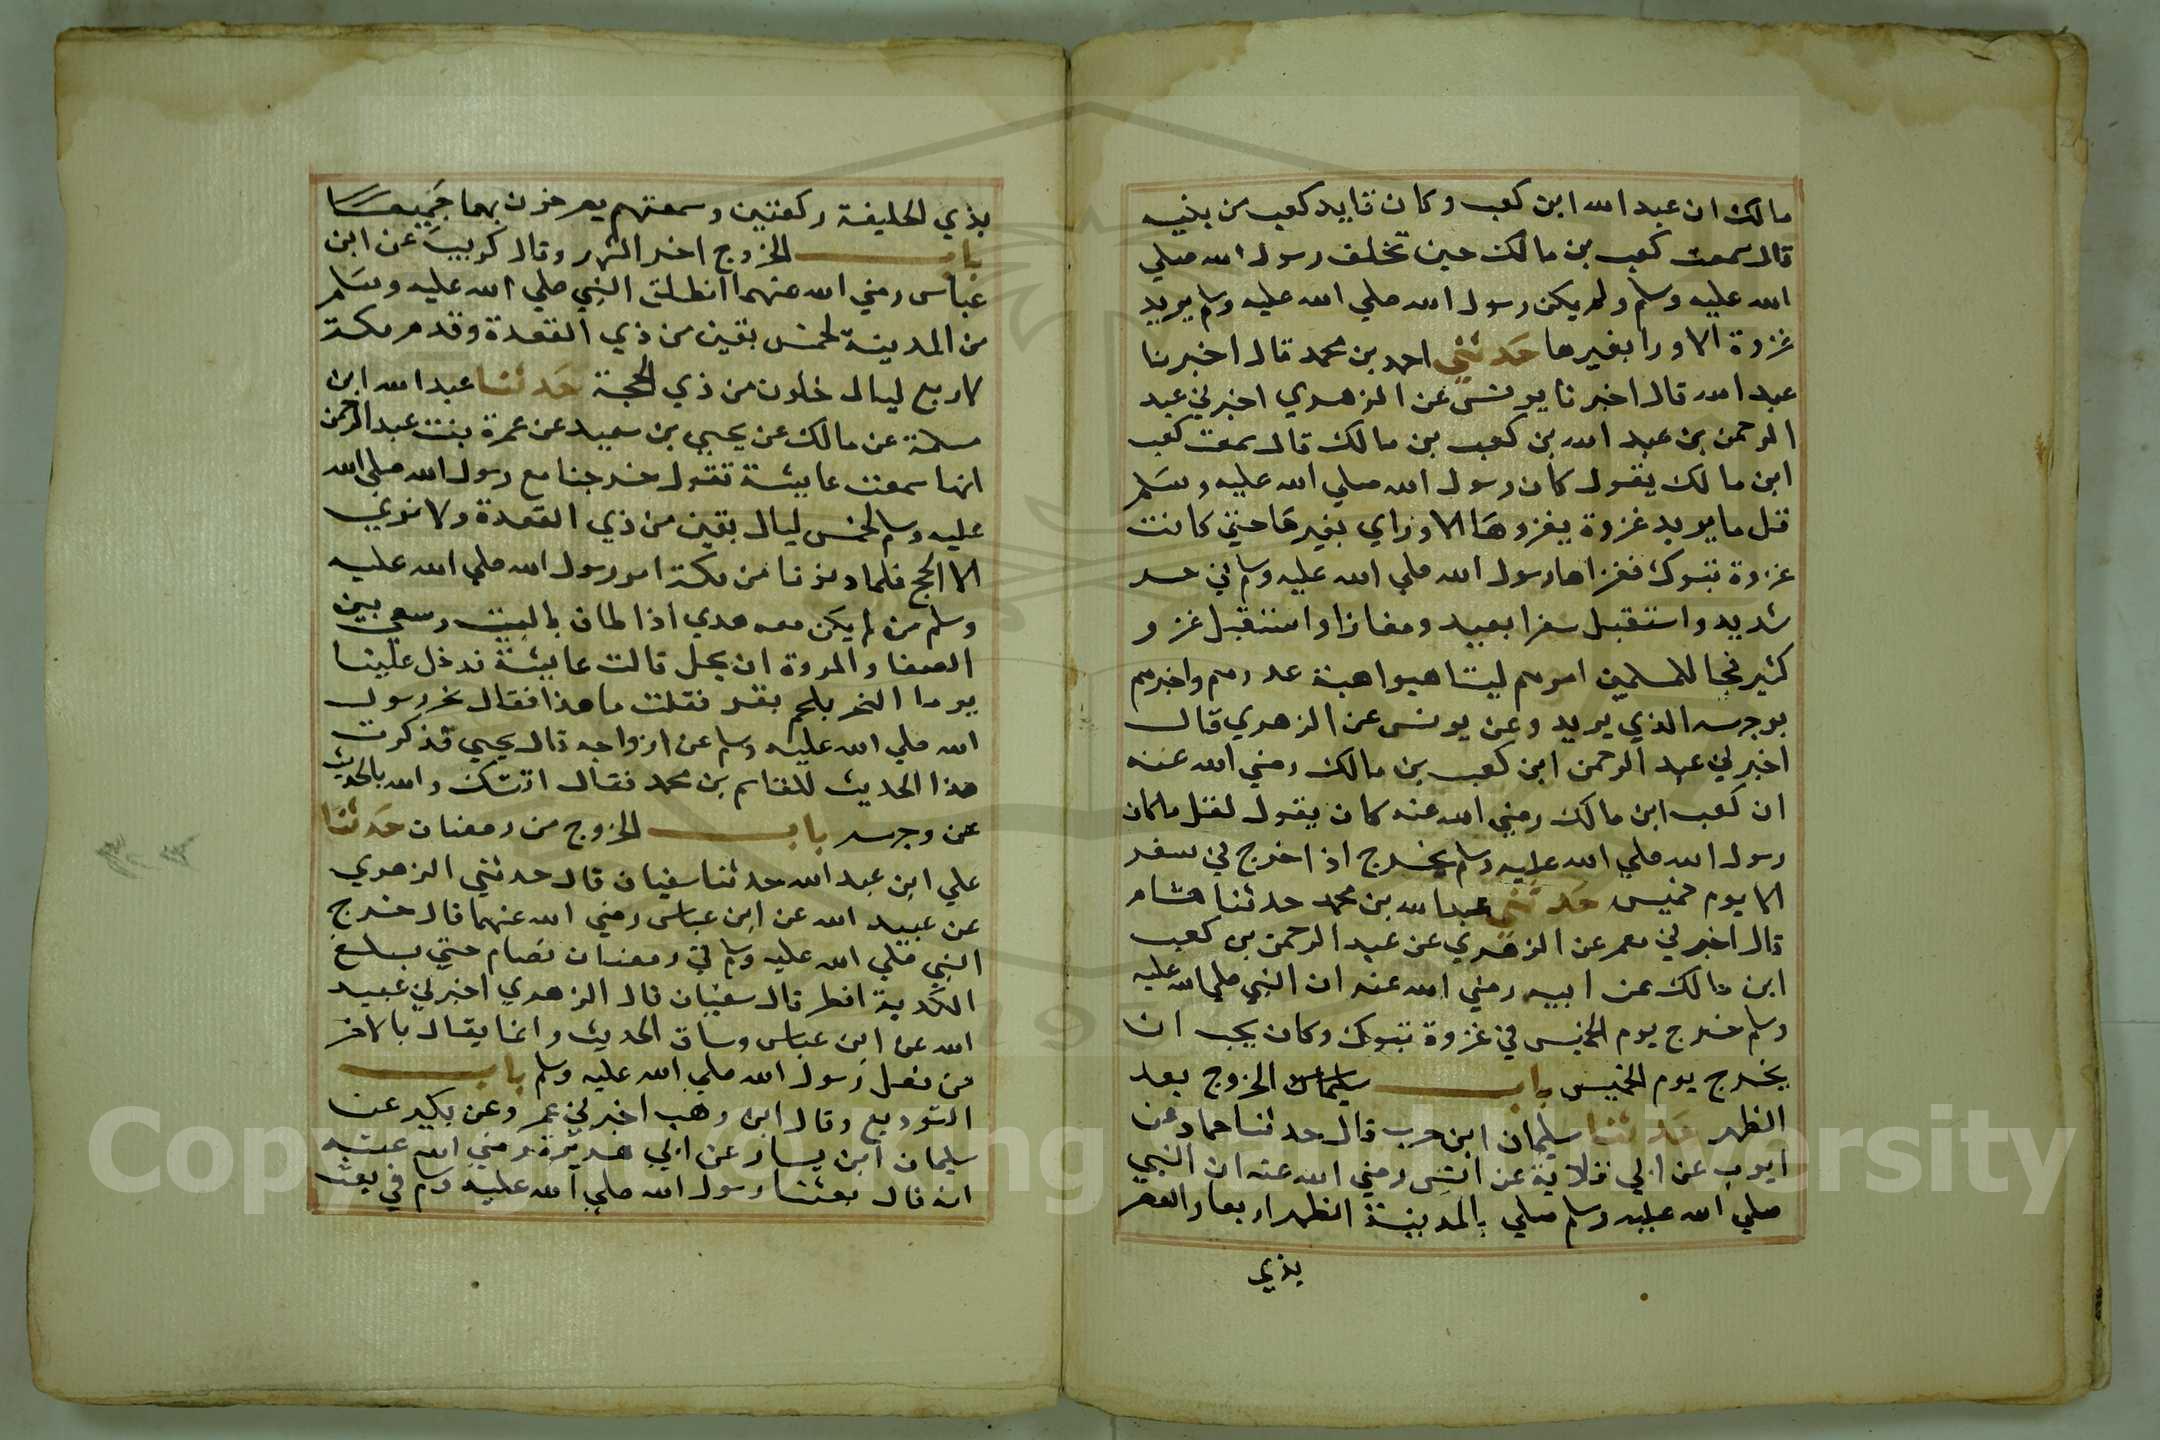 مالك ان عبد الله ابن كعب وكان قايد كعب من بنيه
قال سمعت كعب بن مالك حين تخلف رسول الله صلي
الله عليه وسلم ولم يكن رسول الله صلي الله عليه وسلم يريد
غزوة الا ورا بغيرها حدثني احمد بن محمد قال اخبرنا
عبد الله قال اخبرنا يونس عن الزهري اخبرني عبد
الرحمن بن عبد الله بن كعب بن مالك قال سمعت كعب
ابن مالك يقول كان رسول الله صلي الله عليه وسلم
قل ما يريد غزوة يغزوها الا وراي بغيرها حتي كانت
غزوة تبوك فغزاها رسول الله صلي الله عليه وسلم في حر
شديد واستقبل سفرا بعيد ومفازا واستقبل غزو
كثير فجا للمسلمين امرهم ليتاهبوا اهبة عدوهم واخبرهم
بوجهه الذي يريد وعن يونس عن الزهري قال
اخبرني عبد الرحمن ابن كعب بن مالك رضي الله عنه
ان كعب ابن مالك رضي الله عنه كان يقول لقل ما كان
رسول الله صلي الله عليه وسلم يخرج اذا خرج في سفر
الا يوم خميس حدثني عبد الله بن محمد حدثنا هشام
قال اخبرني معمر عن الزهري عن عبد الرحمن بن كعب
ابن مالك عن ابيه رضي الله عنه ان النبي صلي الله عليه
وسلم خرج يوم الخميس في غزوة تبوك وكان يحب ان
يخرج يوم الخميس باب الخروج بعد
الظهر حدثنا سليمان ابن حرب قال حدثنا حماد عن
ايوب عن ابي قلابة عن انس رضي الله عنه ان النبي
صلي الله عليه وسلم صلي بالمدينة الظهر اربعا والعصر
بذي
بذي الحليفة ركعتين وسمعتهم يصرخون بهما جميعا
باب الخروج اخر الشهر وقال كريب عن ابن
عباس رضي الله عنهما انطلق النبي صلي الله عليه وسلم
من المدينة لخمس بقين من ذي القعدة وقدم مكة
لاربع ليال خلون من ذي الحجة حدثنا عبد الله ابن
مسلمة عن مالك عن يحيي بن سعيد عن عمرة بنت عبد الرحمن
انها سمعت عايشة تقول خرجنا مع رسول الله صلي الله
عليه وسلم لخمس ليال بقين من ذي القعدة ولا نري
الا الحج فلما دنونا من مكة امر رسول الله صلي الله عليه
وسلم من لم يكن معه هدي اذا طاف بالبيت وسعي بين
الصفا والمروة ان يحل قالت عايشة ندخل علينا
يوم النحر بلحم بقر فقلت ما هذا فقال نحر رسول
الله صلي الله عليه وسلم عن ازواجه قال يحيي فذكرت
هذا الحديث للقاسم بن محمد فقال اتتك والله بالحديث
عن وجهه باب الخروج من رمضان حدثنا
علي ابن عبد الله حدثنا سفيان قال حدثني الزهري
عن عبيد الله عن ابن عباس رضي الله عنهما قال خرج
النبي صلي الله عليه وسلم في رمضان فصام حتي بلغ
الكدية افطر قال سفيان قال الزهري اخبرني عبيد
الله عن ابن عباس وساق الحديث وانما يقال بالاخر
من فعل رسول الله صلي الله عليه وسلم باب
التوديع وقال ابن وهب اخبرني عمر وعن بكير عن
سليمان ابن يسار عن ابي هريرة رضي الله عنه
انه قال بعثنا رسول الله صلي الله عليه وسلم في بعث
Copyright © King Saud University